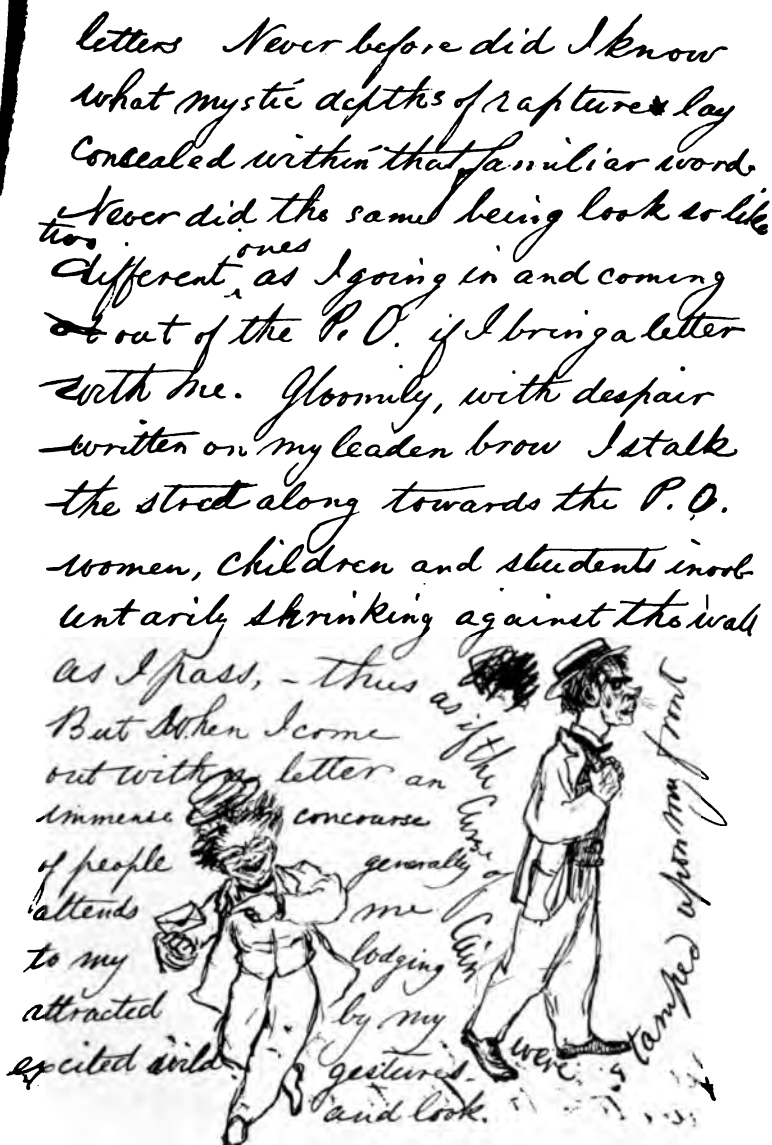 letters Never before did I know
what mystic depths of rapture lay
concealed within that familiar word.
Never did the same being look so like
two
different ones as I going in and coming
out of the P. O. if I bring a letter
with me. Gloomily, with despair
written on my leaden brow I stalk
the street along towards the P. O.
women, children and students invol-
untarily shrinking against the wall
as I pass, – thus
as if the curse of Cain were stamped upon my front
But when I come
out with a letter an
immense concourse
of people generally
attends me
to my lodging
attracted by my
excited wild gestures
and look.